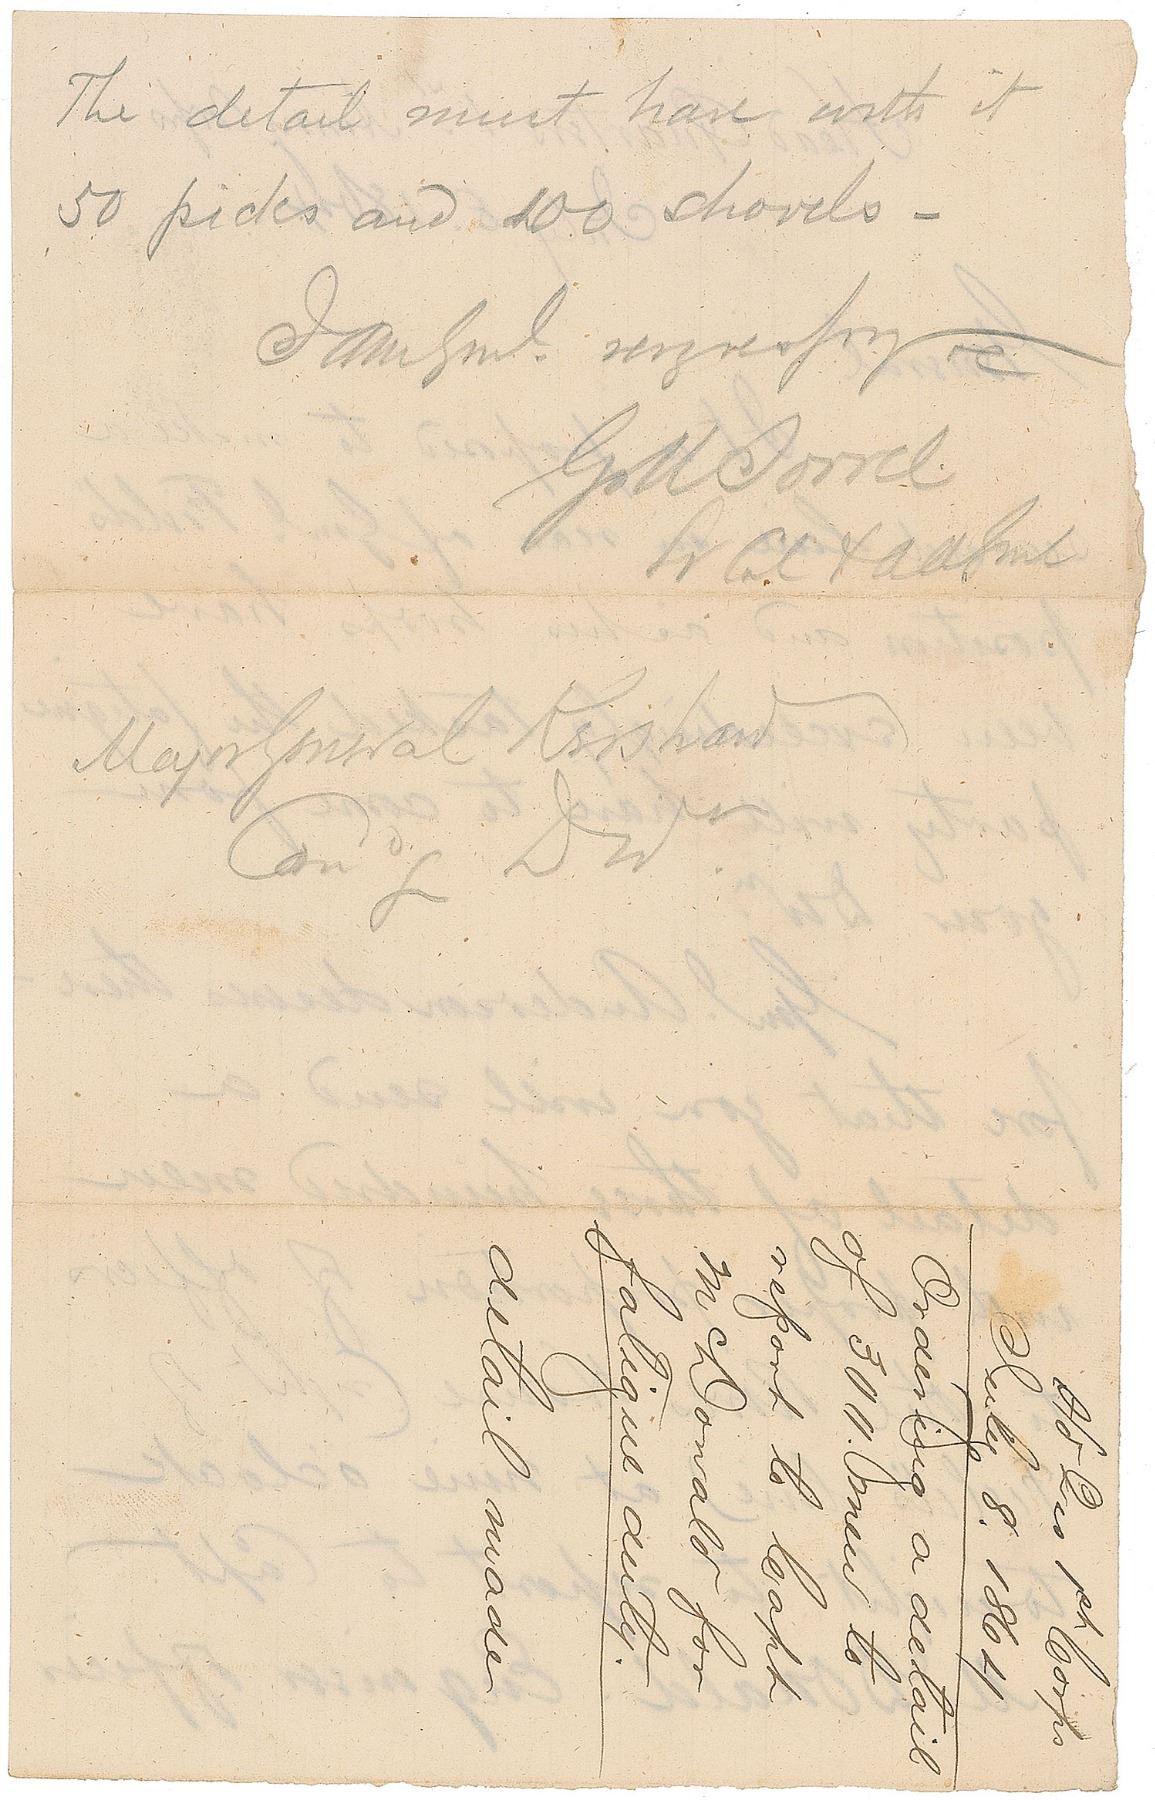 The detail must have with it
50 picks and 100 shovels -
I am Genl. very respy
G M Sorrel
Lt Col & A A Genl
Major General Kershaw
Comdg Divn.
Hd Qrs 1st Corps
July 8. 1864
Ordering a detail
of 300 men to
report to Capt
McDonald for
fatigue duty.
detail made